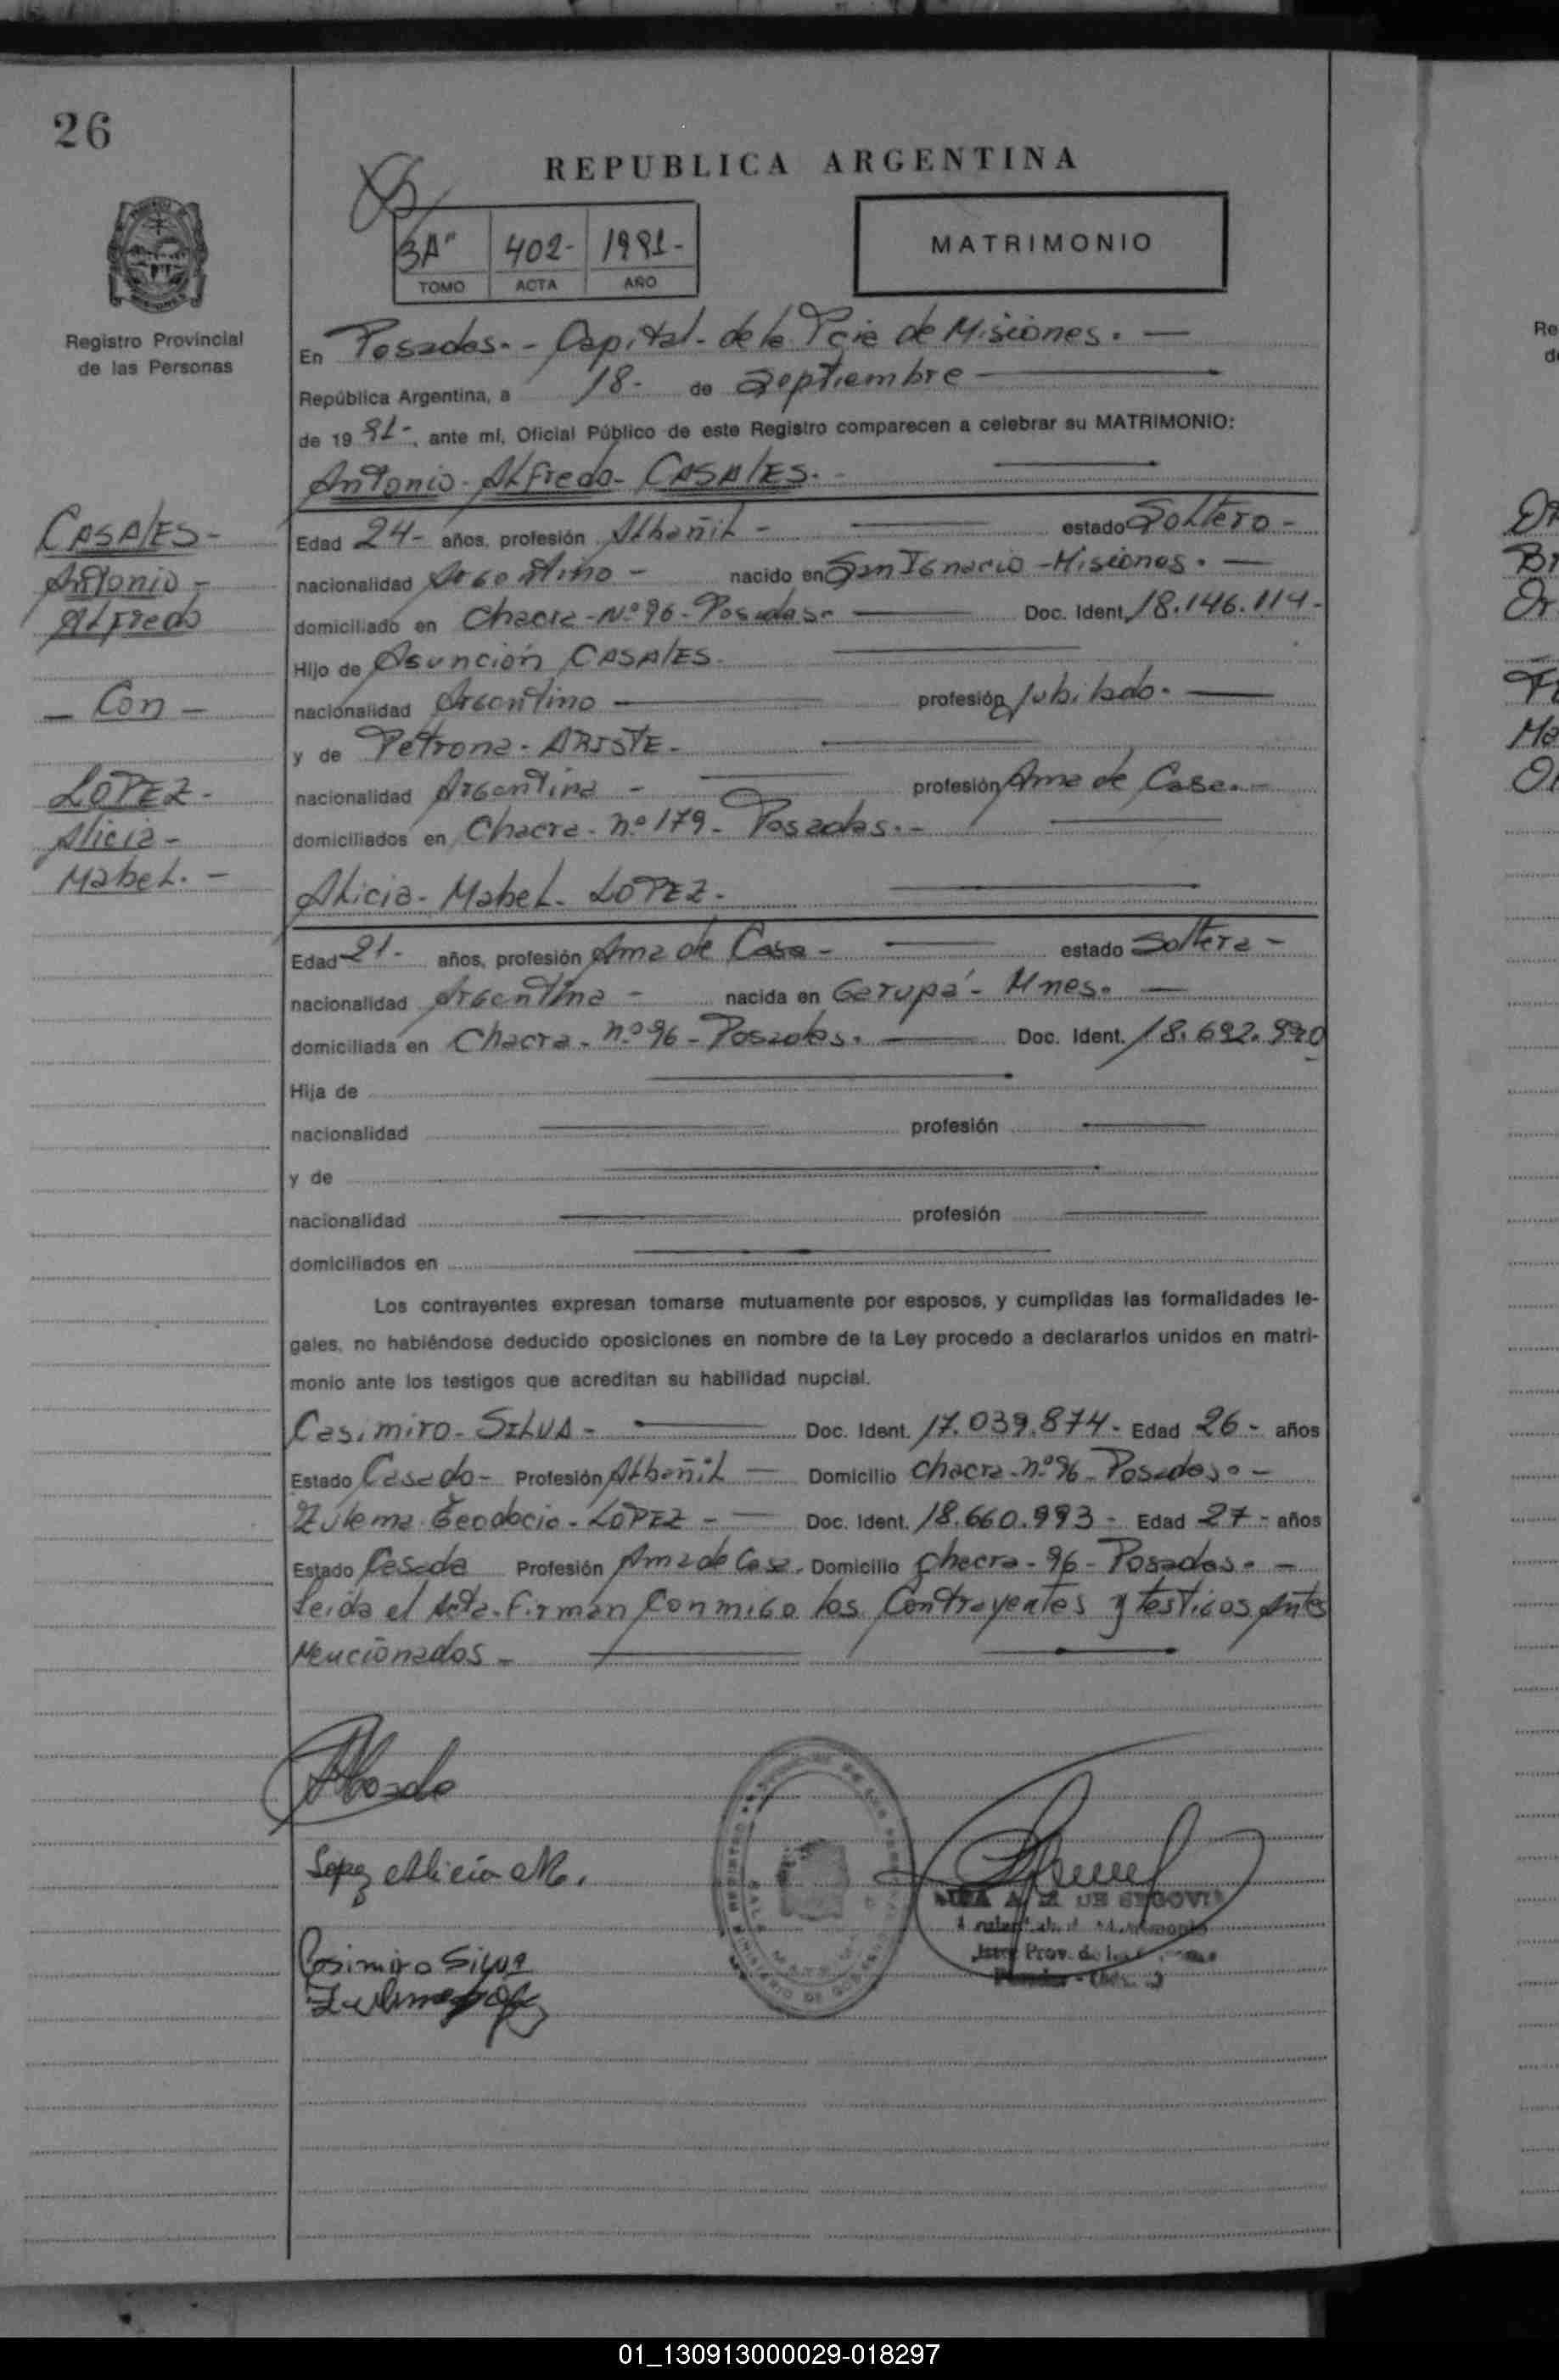 26
REPUBLICA ARGENTINA
Registro Provincial
de las Personas
3A" 402- 1991-
TOMO ACTA AÑO
MATRIMONIO
En Posadas.- Capital- de la Pcia de Misiones. —
República Argentina, a 18- de Septiembre —
de 19 91-, ante mí, Oficial Público de este Registro comparecen a celebrar su MATRIMONIO:
Antonio- Alfredo- CASALES.-
CASALES-
Antonio-
Alfredo
- Con -
LOPEZ-
Alicia-
Mabel. -
Edad 24- años, profesión Albañil - estado Soltero-
nacionalidad Argentino - nacido en San Ignacio - Misiones. —
domiciliado en Chacra- Nº 96- Posadas- Doc. Ident. 18.146.114-
Hijo de Asunción CASALES-
nacionalidad Argentino — profesión Jubilado. —
y de Petrona- ARISTE-
nacionalidad Argentina - profesión Ama de Casa.-
domiciliados en Chacra- nº 179- Posadas.-
Alicia- Mabel- LOPEZ-
Edad 21- años, profesión Ama de Casa - estado Soltera-
nacionalidad Argentina - nacida en Garupá- Mnes. —
domiciliada en Chacra- nº 96- Posadas. — Doc. Ident. 18.692.990
Hija de
nacionalidad profesión
y de
nacionalidad profesión
domiciliados en
Los contrayentes expresan tomarse mutuamente por esposos, y cumplidas las formalidades le-
gales, no habiéndose deducido oposiciones en nombre de la Ley procedo a declararlos unidos en matri-
monio ante los testigos que acreditan su habilidad nupcial.
Casimiro- SILVA- — Doc. Ident. 17.039.874- Edad 26- años
Estado Casado- Profesión Albañil — Domicilio Chacra- nº 96- Posadas. -
Zulema Teodocia- LOPEZ - — Doc. Ident. 18.660.993- Edad 27- años
Estado Casada Profesión Ama de Casa- Domicilio Chacra- 96- Posadas. -
Leída el Acta- Firman Conmigo los Contrayentes y Testigos Antes
Mencionados-
Lopez Alicia M.
Casimiro Silva
Zulema Lopez
DE SEGOVIA
Prov. de
01_130913000029-018297